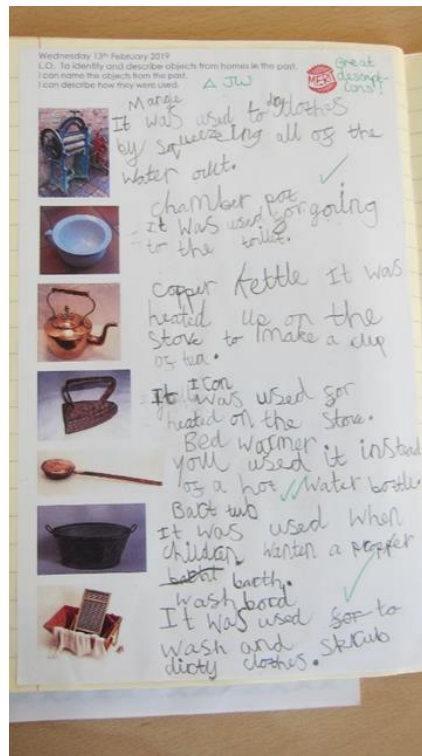 Wednesday 13th February 2019
L.O. To identify and describe objects from homes in the past.
I can name the objects from the past.
I can describe how they were used.
JW
MERIT
Great
descript-
ions!
Mangle
It was used to dry clothes
by squeezing all of the
water out.
chamber pot
It was used for going
to the toilet.
copper kettle It was
heated up on the
stove to make a cup
of tea.
Iron
It was used for
heated on the stove.
Bed warmer
you used it instead
of a hot water bottle.
Bact tub
It was used when
children wanten a propper
barth.
wash bord
It was used for to
wash and skrub
dirty clothes.